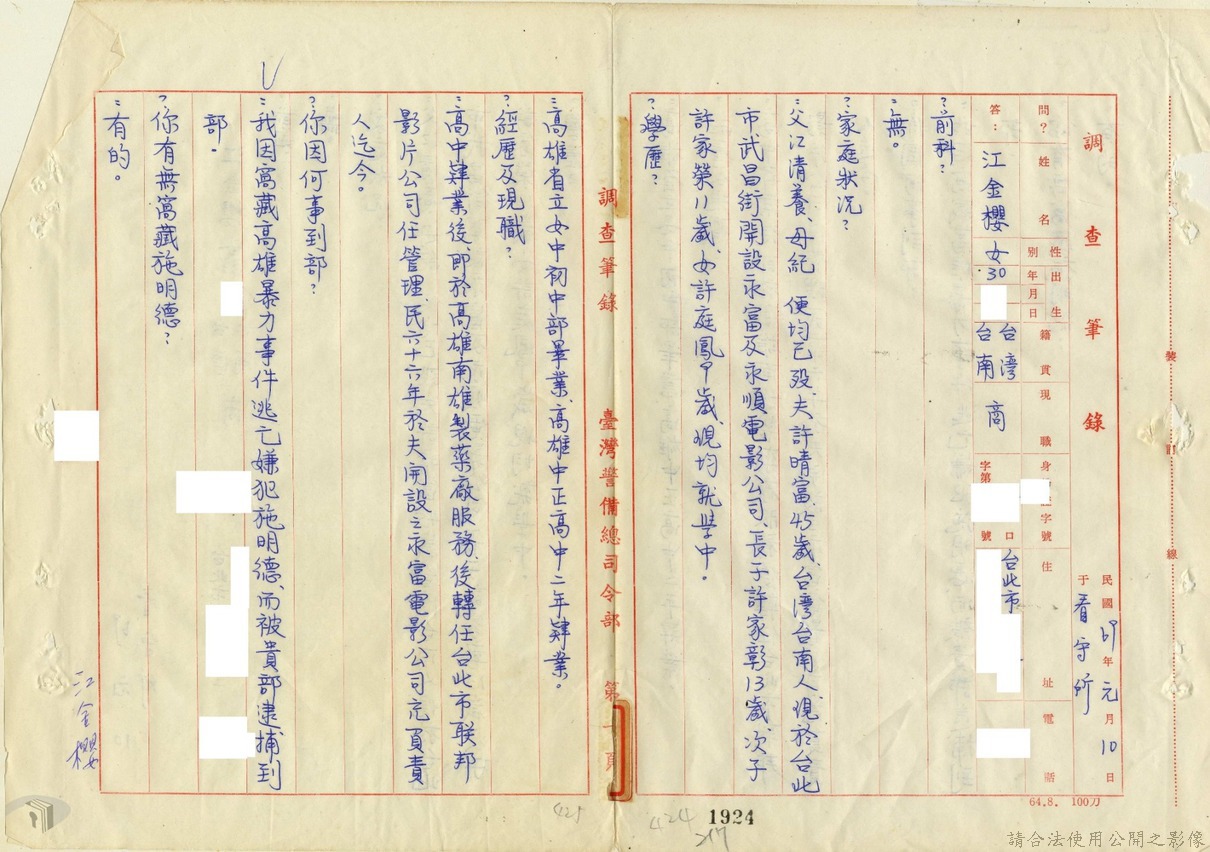 調查筆錄
民國69年元月10日
于看守所
問? 姓名 性別 出生年月日 籍貫 現職 字號 住址 電話
答: 江金櫻 女 30 台灣台南 商 字第 號 台北市
?前科?
:無。
?家庭狀況?
:父江清養、母紀 便均已歿、夫許晴富、45歲、台灣台南人、現於台北
市武昌街開設永富及永順電影公司、長子許家彰13歲、次子
許家榮11歲、女許庭鳳 歲、現均就學中。
?學歷?
調查筆錄 臺灣警備總司令部 第一頁
:高雄省立女中初中部畢業、高雄中正高中二年肄業。
?經歷及現職?
:高中肄業後、即於高雄南雄製藥廠服務、後轉任台北市联邦
影片公司任管理、民六十六年於夫開設之永富電影公司充負責
人迄今。
?你因何事到部?
:我因窩藏高雄暴力事件逃亡嫌犯施明德、而被貴部逮捕到
部.
?你有無窩藏施明德?
:有的。
江金櫻
裝訂線
64.8. 100刀
1924
424
425
217
請合法使用公開之影像